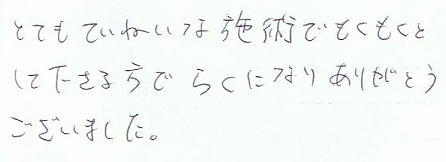 とてもていねいな施術でもくもくと
して下さる方で らくになりありがとう
ございました。